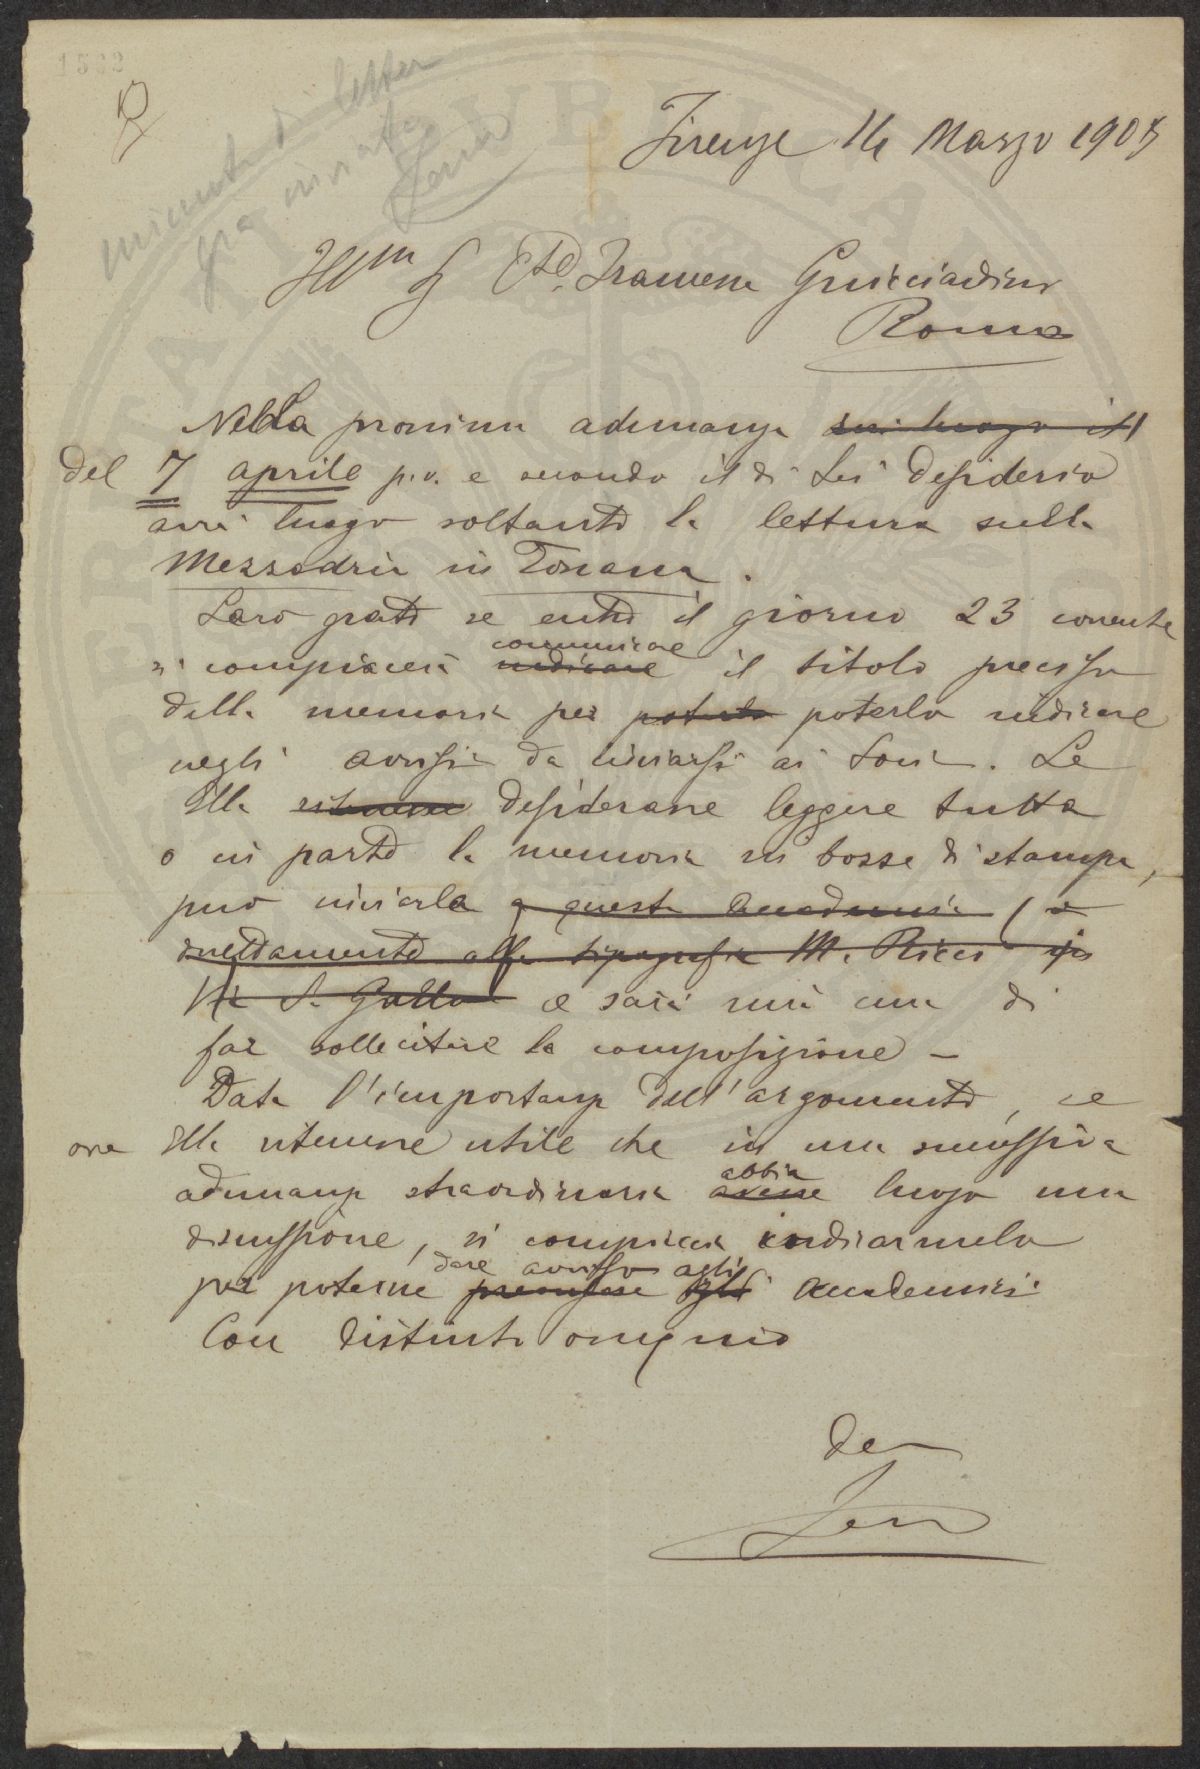 1532
minuta di lettera
già inviata
Firenze 14 Marzo 1907
Illm S Cte Francesco Guicciardini
Roma
Nella prossima adunanza avrà luogo il
del 7 aprile p.v. e secondo il di Lei desiderio
avrà luogo soltanto la lettura sulla
Mezzadria in Toscana.
Sarò grato se entro il giorno 23 corrente
si compiacerà indicare comunicare il titolo preciso
della memoria per poterlo poterlo indicare
negli avvisi da inviarsi ai Soci. Se
Ella ritenesse desiderasse leggere tutta
o in parte la memoria in bozze di stampa,
può inviarla a questa Accademia (o
direttamente alla tipografia M. Ricci in
Via S. Gallo e sarà mia cura di
far sollecitare la composizione –
Data l'importanza dell'argomento, se
ove Ella ritenesse utile che in una successiva
adunanza straordinaria avesse abbia luogo una
discussione, si compiaccia indicarmelo
per poterne preavvisare dare avviso agli Accademici
Con distinto ossequio
Dev